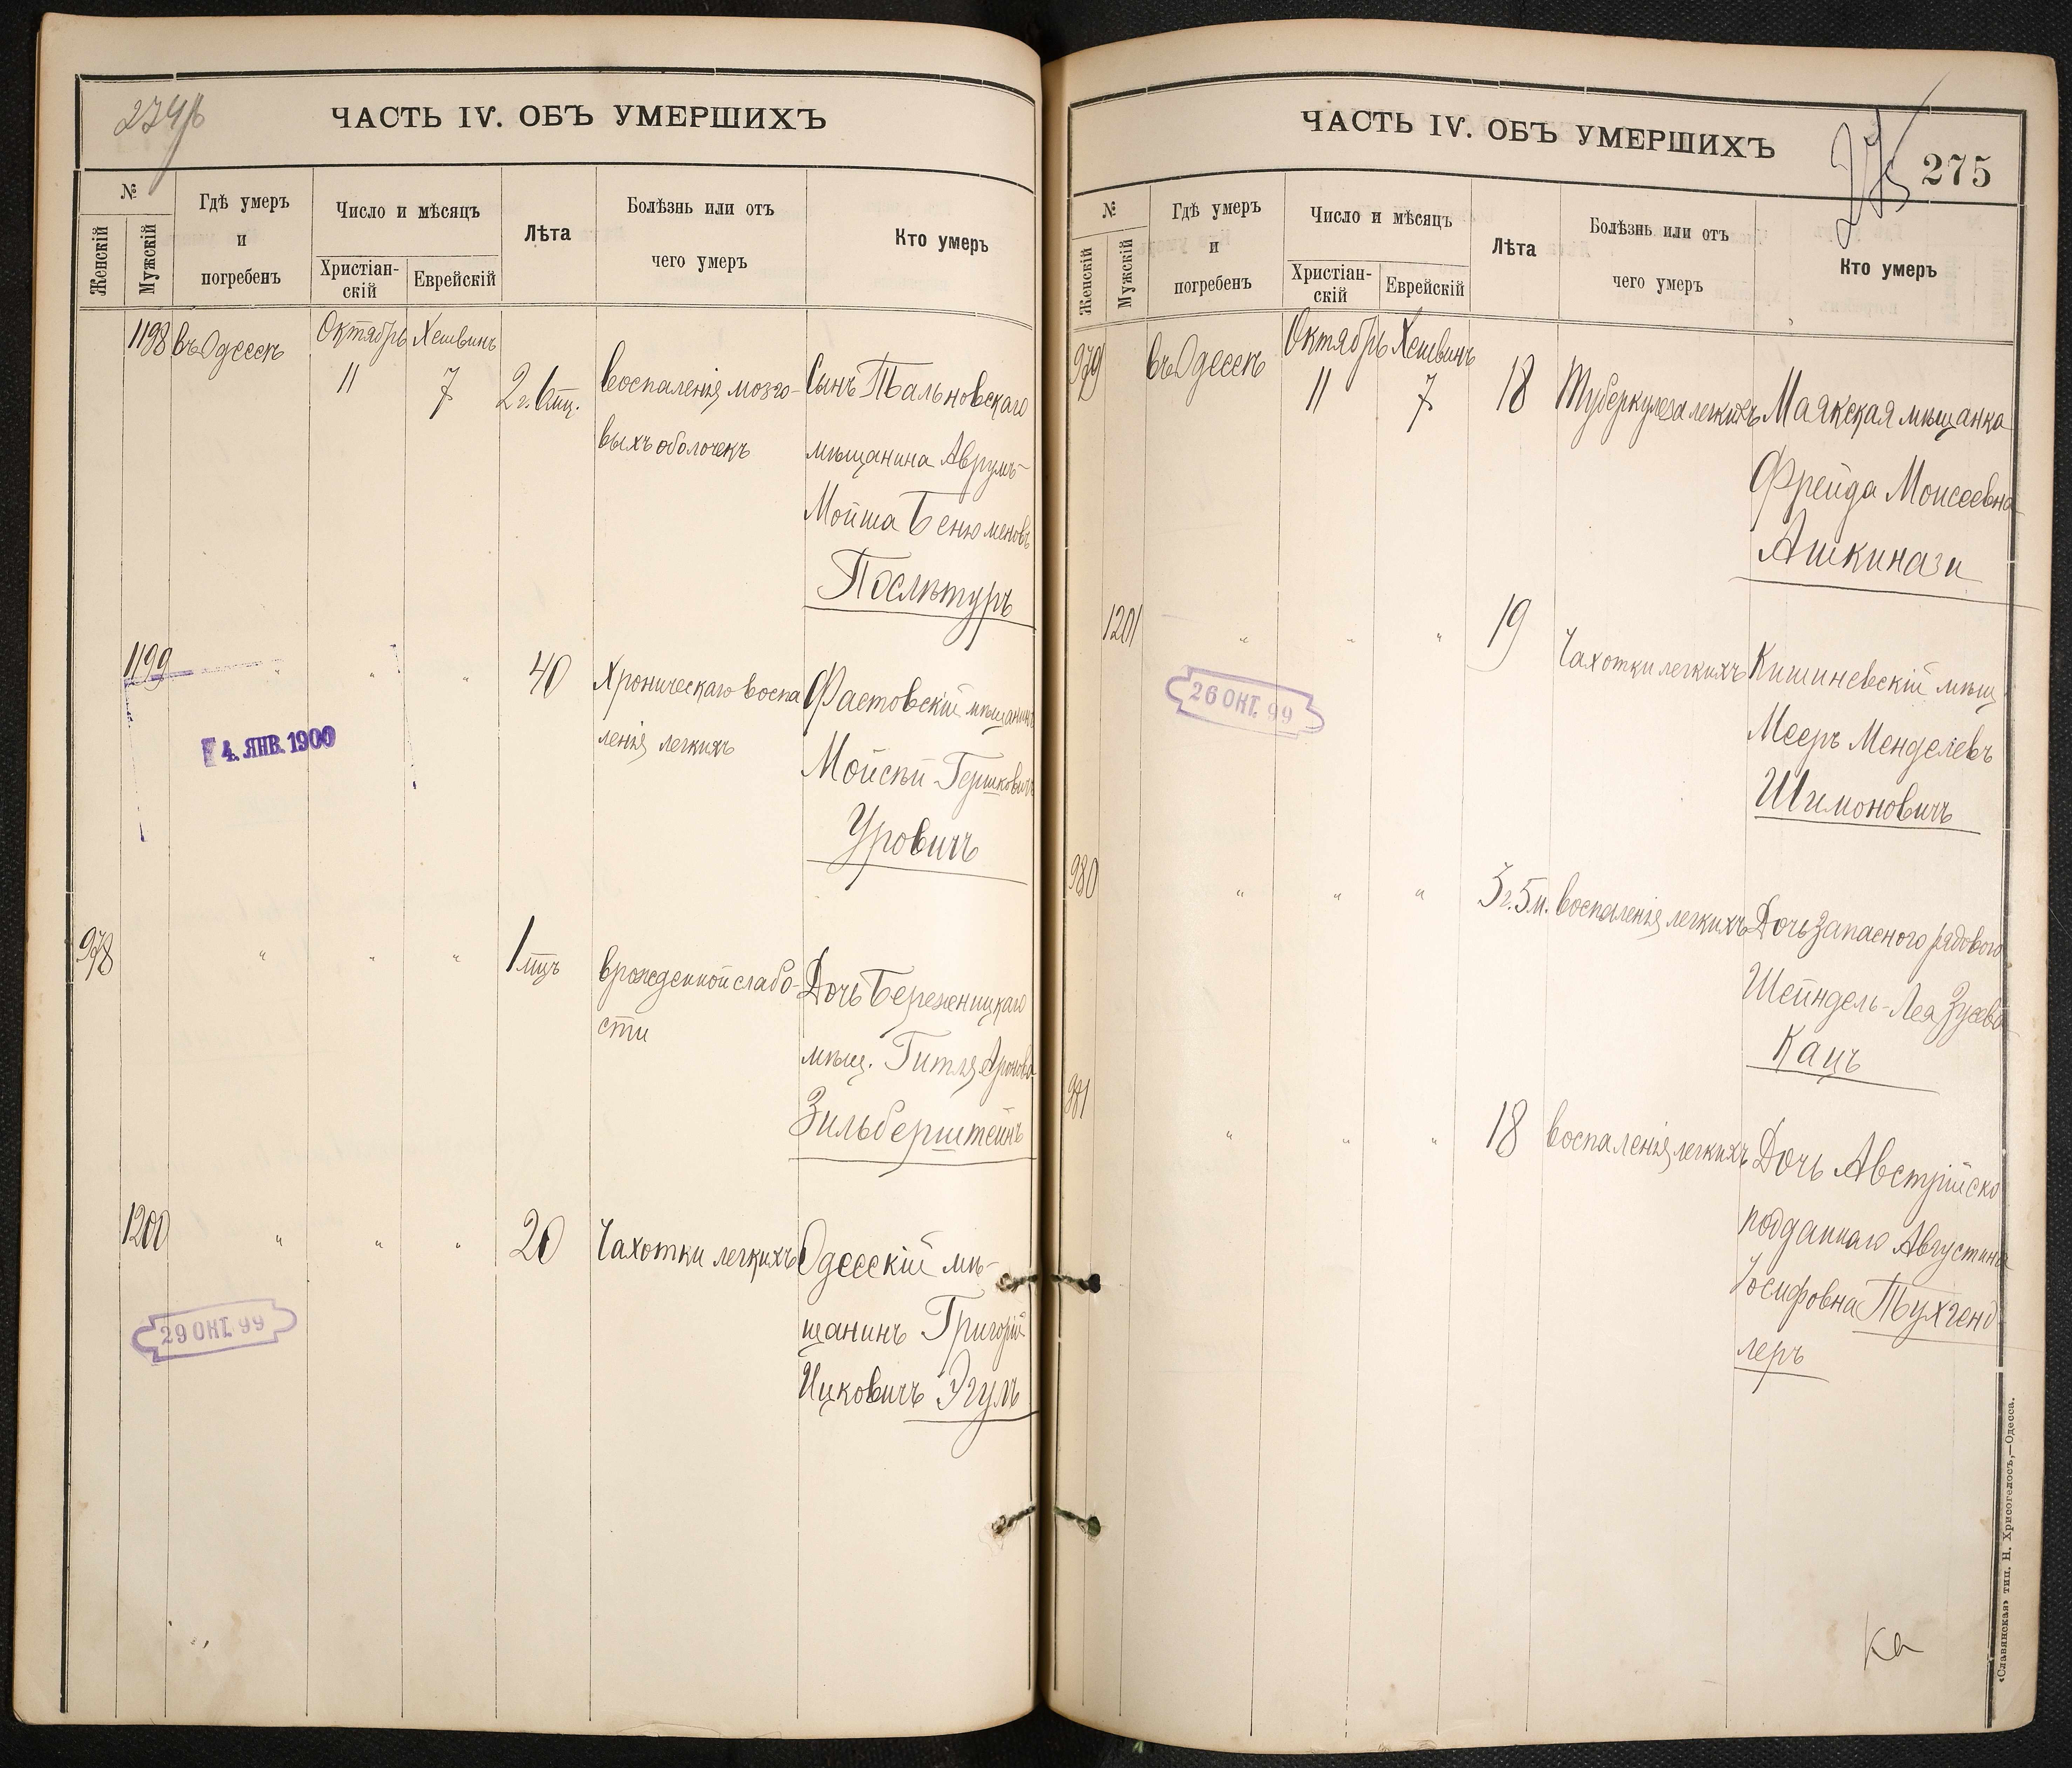 274
ЧАСТЬ IV. ОБЪ УМЕРШИХЪ
№
Женскій
Мужскій
Гдѣ умеръ
и
погребенъ
Число и мѣсяцъ
Христіан-
скій
Еврейскій
Лѣта
Болѣзнь или отъ
чего умеръ
Кто умеръ
1198 въ Одессѣ Октябрь Хешвинъ
11 7 2 г. 6 мц. воспаленія мозго- Сынъ Тальновскаго
выхъ оболочекъ мѣщанина Аврумъ-
Мойша Бенюменовъ
Послѣтуръ
1199 " " " 40 Хроническаго воспа Фастовскій мѣщанинъ
ленія легкихъ Мойсѣй Гершковичъ
Уровичъ
4. ЯНВ. 1900
978 " " " 1 мцъ врожденной слабо- Дочь Береженицкаго
сти мѣщ. Гитля Аронова
Зильберштейнъ
1200 " " " 20 Чахотки легкихъ Одесскій мѣ-
щанинъ Григорій
Ицковичъ Эгулъ
29 ОКТ. 99
ЧАСТЬ IV. ОБЪ УМЕРШИХЪ
275
275
№
Женскій
Мужскій
Гдѣ умеръ
и
погребенъ
Число и мѣсяцъ
Христіан-
скій
Еврейскій
Лѣта
Болѣзнь или отъ
чего умеръ
Кто умеръ
979 въ Одессѣ Октябрь Хешвинъ
11 7 18 Туберкулеза легкихъ Маякская мѣщанка
Фрейда Моисеевна
Ашкинази
1201 " " " 19 Чахотки легкихъ Кишиневскій мѣщ.
Мееръ Менделевъ
Шимоновичъ
26 ОКТ. 99
980 " " " 3 г. 5 м. воспаленія легкихъ Дочь запасного рядового
Шейндель-Лея Зусева
Кацъ
981 " " " 18 воспаленія легкихъ Дочь Австрійско
подданнаго Августина
Іосифовна Тухгенд
леръ
Ка
«Славянская» тип. Н. Хрисогелосъ,—Одесса.